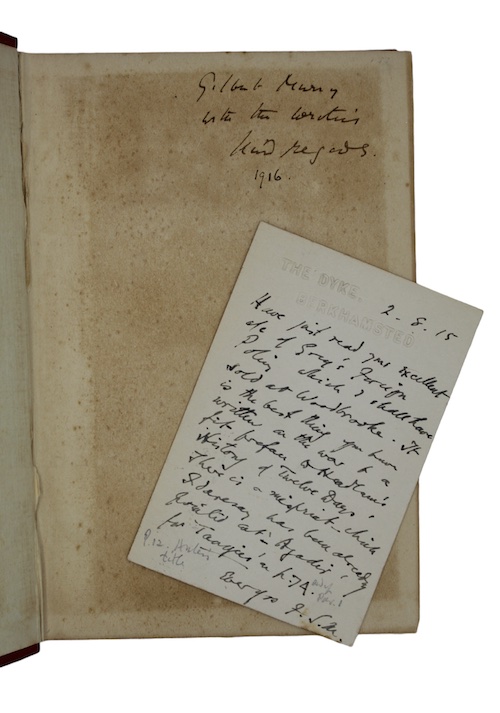 Gilbert Murray
with the writer's
kind regards.
1916.
THE DYKE,
BERKHAMSTED.
2-8-15
Have just read your excellent
of Grey's Foreign
Policy which I shall have
sold at Woodbrooke. It
is the best thing you have
written on the war & a
fit preface to Headlam's
History of Twelve Days.
There is a misprint which
I daresay has been already
'Agadir'
for 'Tangier' on p.
P. 12.
Ever yrs J. S. M.